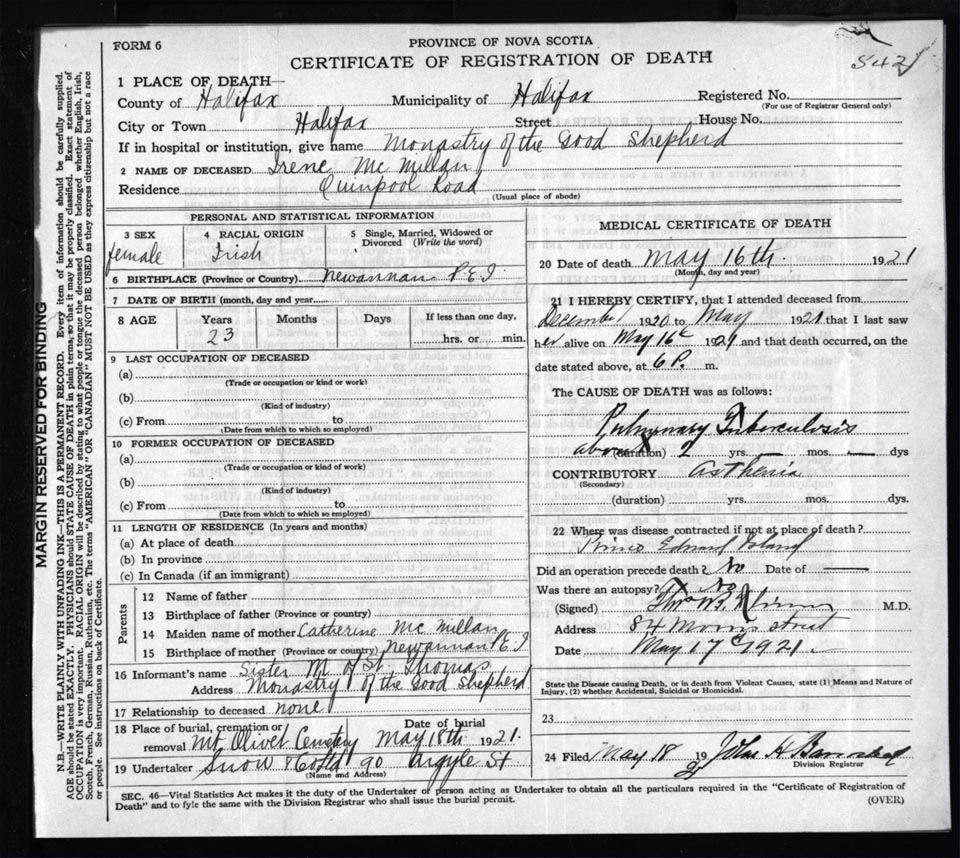 FORM 6
PROVINCE OF NOVA SCOTIA
CERTIFICATE OF REGISTRATION OF DEATH
542
1 PLACE OF DEATH—
County of Halifax Municipality of Halifax Registered No.
(For use of Registrar General only)
City or Town Halifax Street House No.
If in hospital or institution, give name Monastry of the Good Shepherd
2 NAME OF DECEASED Irene Mc Millan
Residence Quinpool Road
(Usual place of abode)
PERSONAL AND STATISTICAL INFORMATION
3 SEX female
4 RACIAL ORIGIN Irish
5 Single, Married, Widowed or Divorced (Write the word)
6 BIRTHPLACE (Province or Country) Newannan P.E.I
7 DATE OF BIRTH (month, day and year)
8 AGE Years 23 Months Days If less than one day, hrs. or min.
9 LAST OCCUPATION OF DECEASED
(a)
(Trade or occupation or kind or work)
(b)
(Kind of industry)
(c) From to
(Date from which to which so employed)
10 FORMER OCCUPATION OF DECEASED
(a)
(Trade or occupation or kind of work)
(b)
(Kind of industry)
(c) From to
(Date from which to which so employed)
11 LENGTH OF RESIDENCE (In years and months)
(a) At place of death
(b) In province
(c) In Canada (if an immigrant)
Parents
12 Name of father
13 Birthplace of father (Province or country)
14 Maiden name of mother Catherine Mc Millan
15 Birthplace of mother (Province or country) Newannan P.E.I
16 Informant's name Sister M of St. Thomas
Address Monastry of the Good Shepherd
17 Relationship to deceased none
18 Place of burial, cremation or removal Mt Olivet Cemetery Date of burial May 18th 1921.
19 Undertaker Snow & Co Ltd 90 Argyle St
(Name and Address)
MEDICAL CERTIFICATE OF DEATH
20 Date of death May 16th. 1921
(Month, day and year)
21 I HEREBY CERTIFY, that I attended deceased from
December 1920 to May 1921 that I last saw
her alive on May 16th 1921 and that death occurred, on the
date stated above, at 6 P. m.
The CAUSE OF DEATH was as follows:
Pulmonary Tuberculosis
about (duration) 2 yrs. — mos. — dys
CONTRIBUTORY Asthenia
(Secondary)
(duration) yrs. mos. dys.
22 Where was disease contracted if not at place of death?
Prince Edward Island
Did an operation precede death? No Date of —
Was there an autopsy? No
(Signed) M.D.
Address 84 Morris street
Date May 17th 1921
State the Disease causing Death, or in death from Violent Causes, state (1) Means and Nature of Injury, (2) whether Accidental, Suicidal or Homicidal.
23
24 Filed May 18 1921 John H Barnstead
Division Registrar
SEC. 46—Vital Statistics Act makes it the duty of the Undertaker or person acting as Undertaker to obtain all the particulars required in the "Certificate of Registration of
Death" and to fyle the same with the Division Registrar who shall issue the burial permit.
(OVER)
MARGIN RESERVED FOR BINDING
N.B.—WRITE PLAINLY WITH UNFADING INK—THIS IS A PERMANENT RECORD. Every item of information should be carefully supplied.
AGE should be stated EXACTLY. PHYSICIANS should STATE CAUSE OF DEATH in plain terms, so that it may be properly classified. Exact statement of
OCCUPATION is very important. RACIAL ORIGIN will be described by stating to what people or tongue the deceased person belonged whether English, Irish,
Scotch, French, German, Russian, Ruthenian, etc. The terms "AMERICAN" or "CANADIAN" MUST NOT BE USED as they express citizenship but not a race
or people. See instructions on back of Certificate.